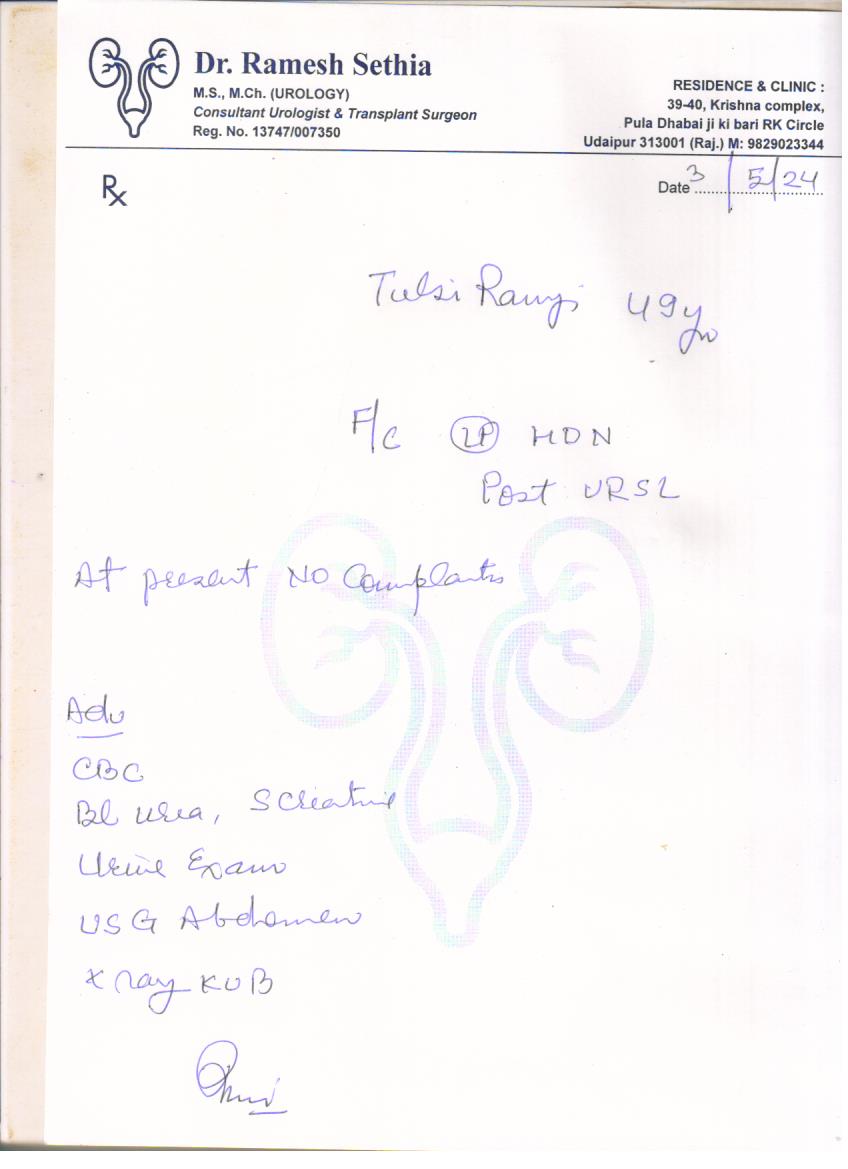 Dr. Ramesh Sethia
M.S., M.Ch. (UROLOGY)
Consultant Urologist & Transplant Surgeon
Reg. No. 13747/007350
RESIDENCE & CLINIC :
39-40, Krishna complex,
Pula Dhabai ji ki bari RK Circle
Udaipur 313001 (Raj.) M: 9829023344
Rx
Date 3/5/24
Tulsi Ramji 49 yr
F/C HDN
Post URSL
At present NO Complants
Adv
CBC
Bl urea, S Creatinie
Urine Exam
USG Abdomen
X ray KUB